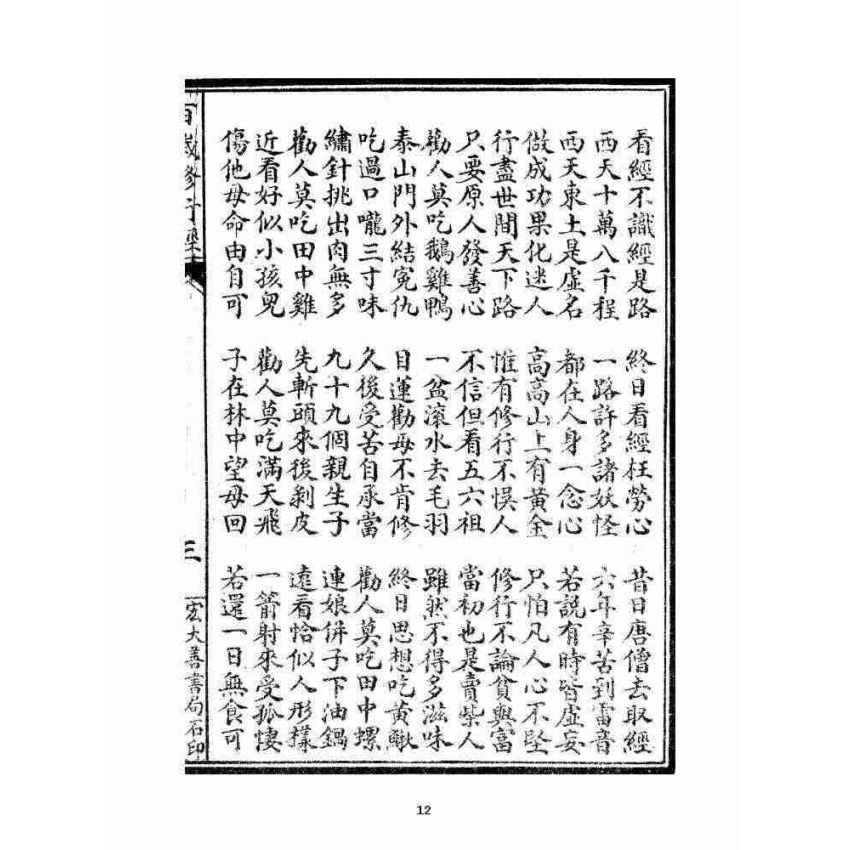 看經不識經是路　終日看經枉勞心　昔日唐僧去取經
西天十萬八千程　一路許多諸妖怪　六年辛苦到雷音
西天東土是虛名　都在人身一念心　若說有時皆虛妄
做成功果化迷人　高高山上有黃金　只怕凡人心不堅
行盡世間天下路　惟有修行不悞人　修行不論貧與富
只要原人發善心　不信但看五六祖　當初也是賣柴人
勸人莫吃鵝雞鴨　一盆滾水去毛羽　雖然不得多滋味
泰山門外結冤仇　目蓮勸母不肯修　終日思想吃黃鰍
吃過口嚨三寸味　久後受苦自承當　勸人莫吃田中螺
繡針挑出肉無多　九十九個親生子　連娘併子下油鍋
勸人莫吃田中雞　先斬頭來後剝皮　遠看恰似人形樣
近看好似小孩兒　勸人莫吃滿天飛　一箭射來受孤悽
傷他母命由自可　子在林中望母回　若還一日無食可
三　宏大善書局石印
12